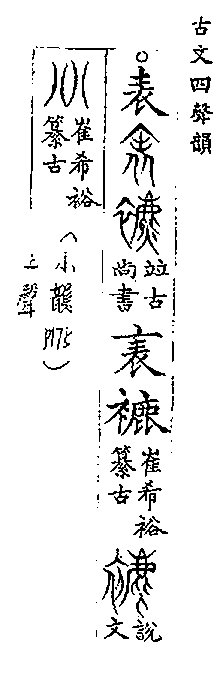 古文四聲韻
○表
竝古
尚書
崔希裕
纂古
說
文
崔希裕
纂古
（小韻P175）
上聲